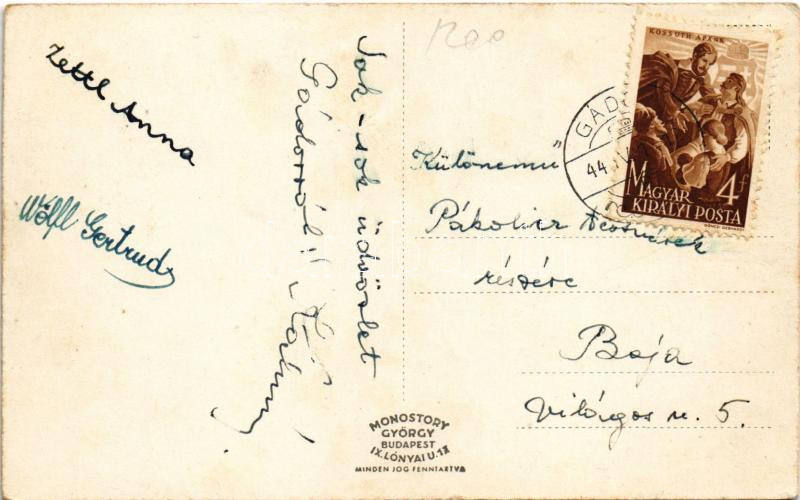 Zettl Anna
Wölfl Gertrud
Sok-sok üdvözlet
Gádorról!
Kálmán!
1200
KOSSUTH APÁNK
4f
MAGYAR
KIRÁLYI POSTA
GÁD
44
Különemű
Pákolicz
részére
Baja
Világos u. 5.
MONOSTORY
GYÖRGY
BUDAPEST
IX. LÓNYAI U. 18
MINDEN JOG FENNTARTVA